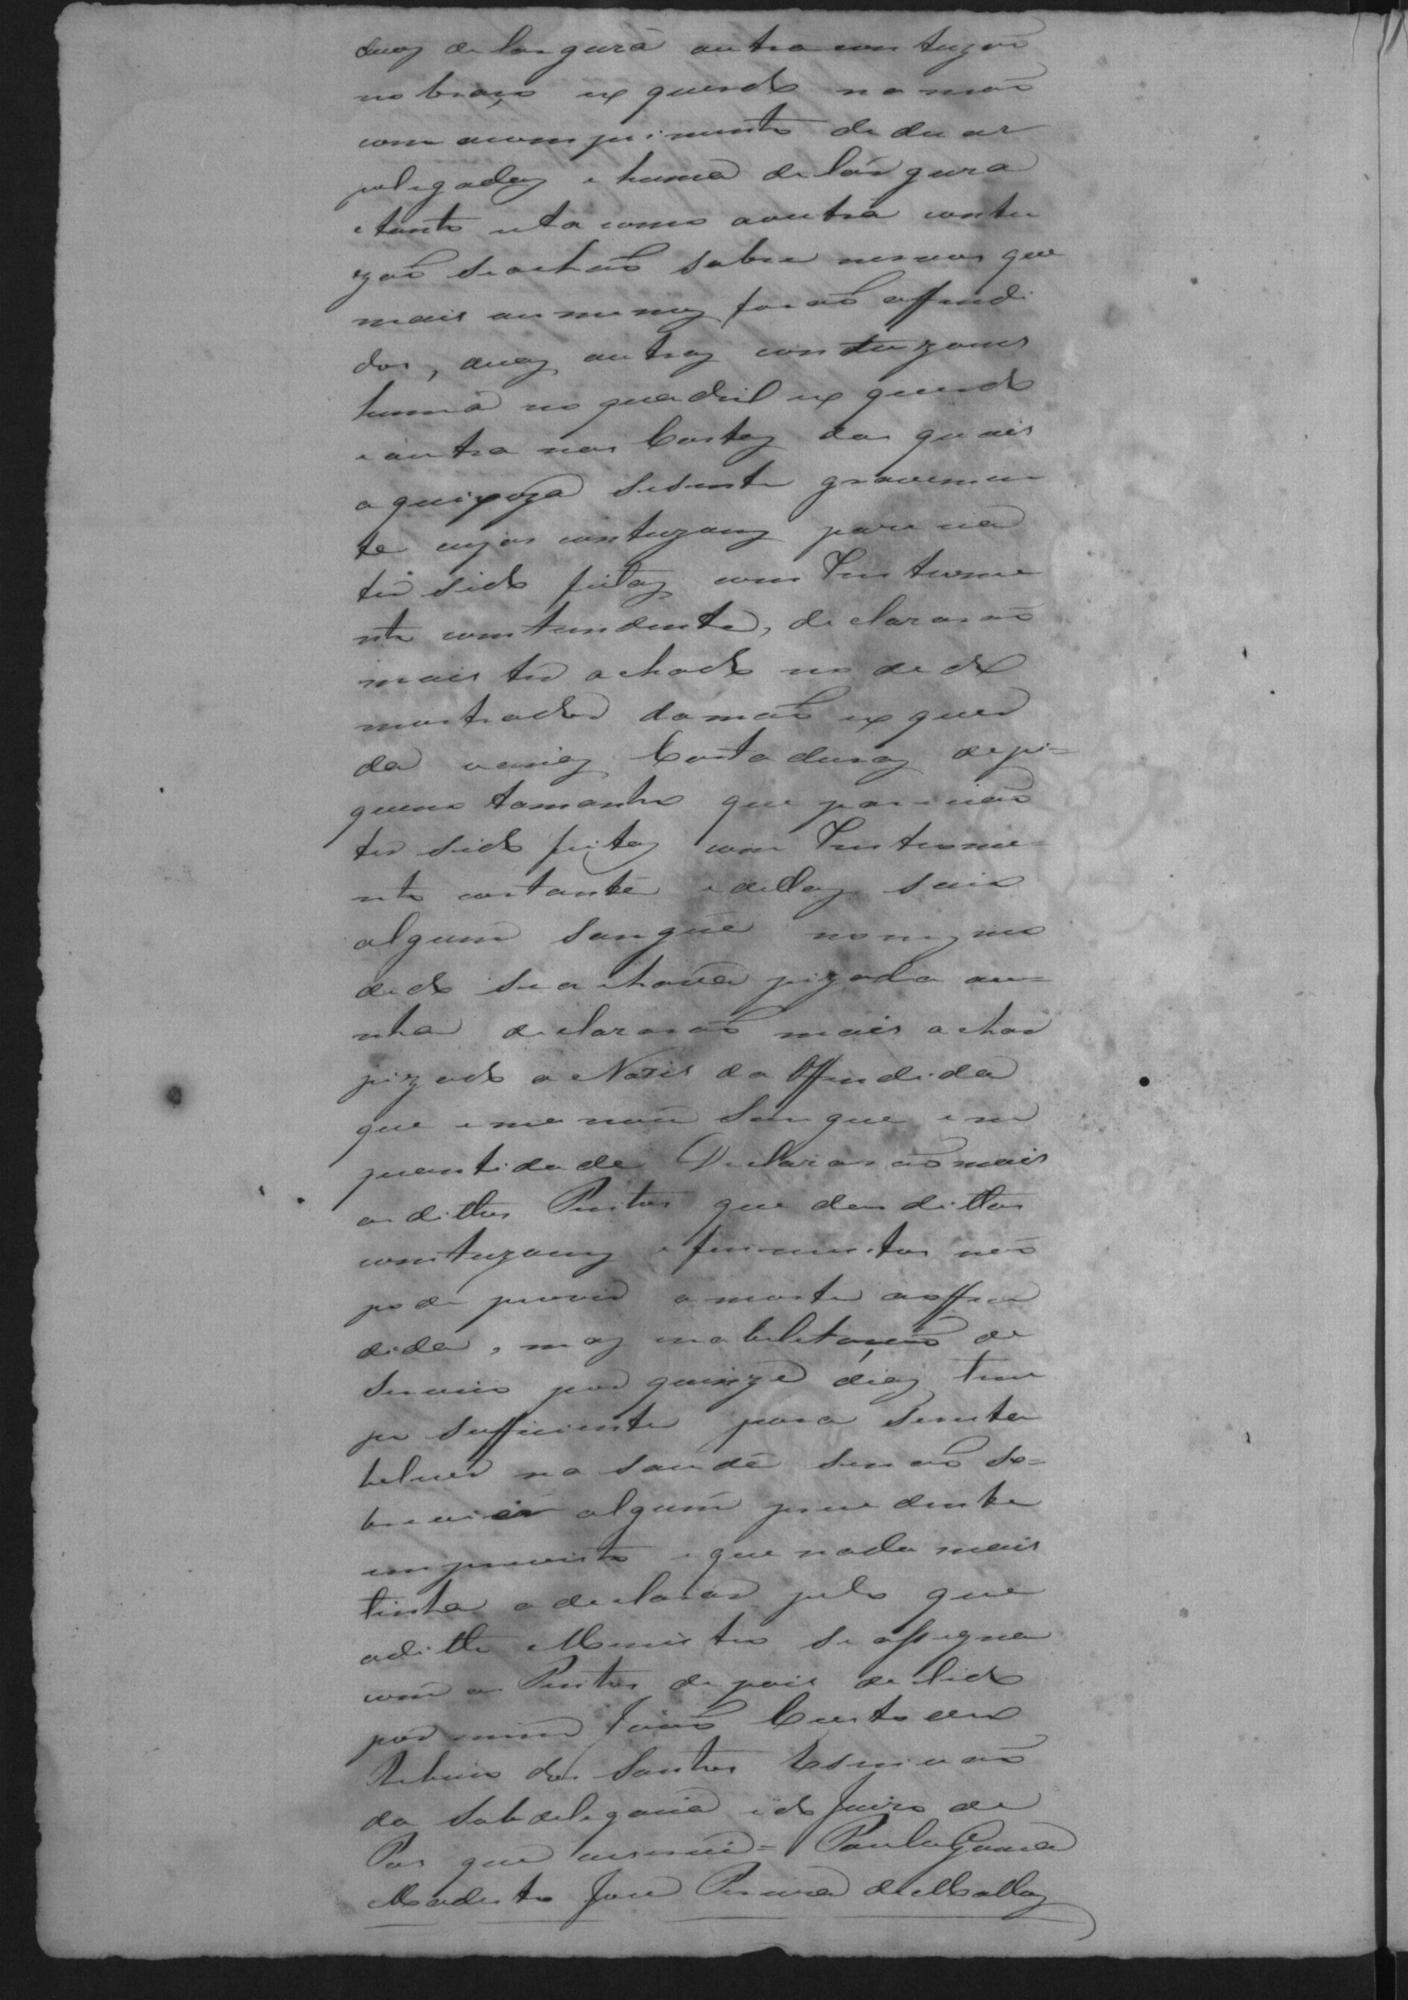 duas de largura outra contuzaõ
no braço exquerdo na maõ
com a comprimento de duas
polegadas e huma de largura
e tanto esta como a outra contu
zaõ se achaõ sobre nervos que
mais ou menos foraõ offendi
dos, duas outras contuzoens
huma no quadril exquerdo
e outra nas Costas das quais
a queixoza se sente gravemen
te cujas contuzoens parecia
ter sido feitas com Instrome
nto contundente, declararaõ
mais ter achado no dedo
mostrador da maõ exquer
da varias Cortaduras de pi=
queno tamanho que pareciaõ
ter sido feitas com Instrome
nto cortante e dellas saio
algum sangue no mesmo
dedo se achava pizada au=
nha declararaõ mais achar
pizado o Naris da Offendida
que emanou Sangue em
quantidade Declararaõ mais
os dittos Peritos que das dittas
contuzoens e ferimentos naõ
pode provir a morte a offen
dida, mas inabelitaçaõ de
Serviço por quinze dias tem
po sufficiente para Se esta
beleser na saude se naõ so=
brevier algum precedente
imprevisto e que nada mais
tinha a declarar pelo que
o ditto Menistro se assigna
com os Peritos depois de lido
por mim Joaõ Custodio
Ribeiro dos Santos Escrivaõ
da Subdelegacia e do Juizo de
Pas que escrevi = Paula Gomes
Modesto Jose Pereira de Mattos